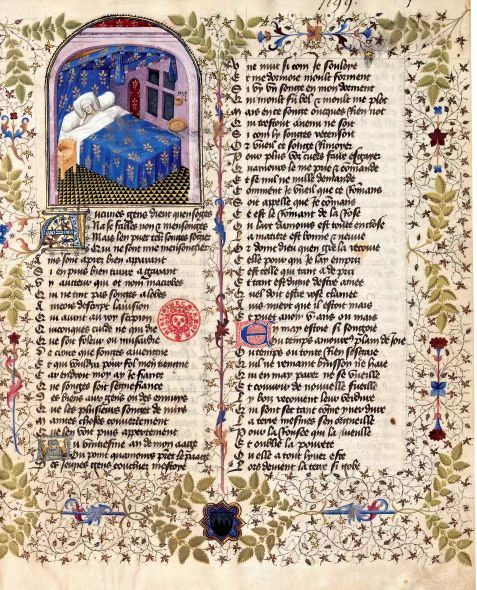 1199.
Aucunes gens dient quen songes
Na se fables non & mensonges
Mais len puet songes songier
Qui ne sont mie mensongier
sont apres bien aparant
Si en puis bien traire a garant
Un aucteur qui ot non macrobes
Qui ne tint pas songes a lobes
la vision
Qui avint au roy
Quiconques cuide ne qui die
Que soit foleur ou musardie
De croire que songes aviengne
Et qui vouldra pour fol men tiengne
Car endroit moy ay je fiance
Que songes soit senefiance
Des biens aux gens ou des ennuis
Que les plusieurs songent de nuis
Maintes choses couvertement
Que len voit puis appertement
Ou vintiesme an de mon aage
Ou point quamours prent le paage
Des jeunes gens couchier mestoye
Une nuit si com je souloye
Et me dormoie moult forment
Si vy un songe en mon dorment
Qui moult fu bel & moult me plot
Mais en ce songe onques rien not
Qui trestout avenu ne soit
Si com li songes recensoit
Or vueil ce songe rimoyer
Pour plus voz cuers faire esgayer
Quamours le me prie & commande
Et se nul ne nulle demande
Comment je vueil que ce rommans
Soit appelle que je commans
Ce est le Rommant de la Rose
Ou lart damours est toute enclose
La matiere est bonne & neuve
Or doint dieu quen gre la recoive
Celle pour qui je lay empris
Cest celle qui tant a de pris
Et tant est digne destre amee
Quel doit estre rose clamee
Avis miert que il estoit mais
Il a ja bien cinq ans ou mais
En may estoie si songoie
Ou temps amoureux plain de joie
Ou temps ou toute rien sesgaie
Que nul ne remaint buisson ne haie
Qui en may parer ne se vueille
Et couvrir de nouvelle fueille
Les bois recouvrent leur verdure
Qui sont sec tant comme yver dure
La terre mesmes sen orgueille
Pour la rousee qui la mueille
Et oublie la povrete
Ou elle a tout lyver este
Lors devient la terre si gobe